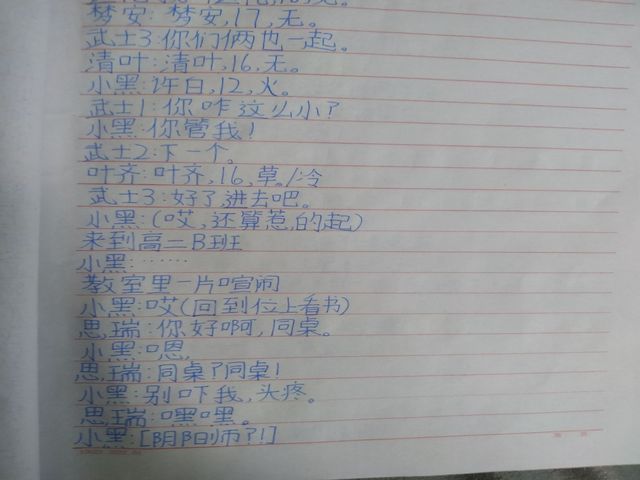 梦安:梦安,17,无。
武士3:你们俩也一起。
清叶:清叶,16,无。
小黑:许白,12,火。
武士1:你咋这么小?
小黑:你管我!
武士2:下一个。
叶齐:叶齐,16,草/冷
武士3:好了,进去吧。
小黑:(哎,还算惹的起)
来到高二B班
小黑:……
教室里一片喧闹
小黑:哎(回到位上看书)
思瑞:你好啊,同桌。
小黑:嗯,
思瑞:同桌?同桌!
小黑:别吓我,头疼。
思瑞:嘿嘿。
小黑:[阴阳师?!]